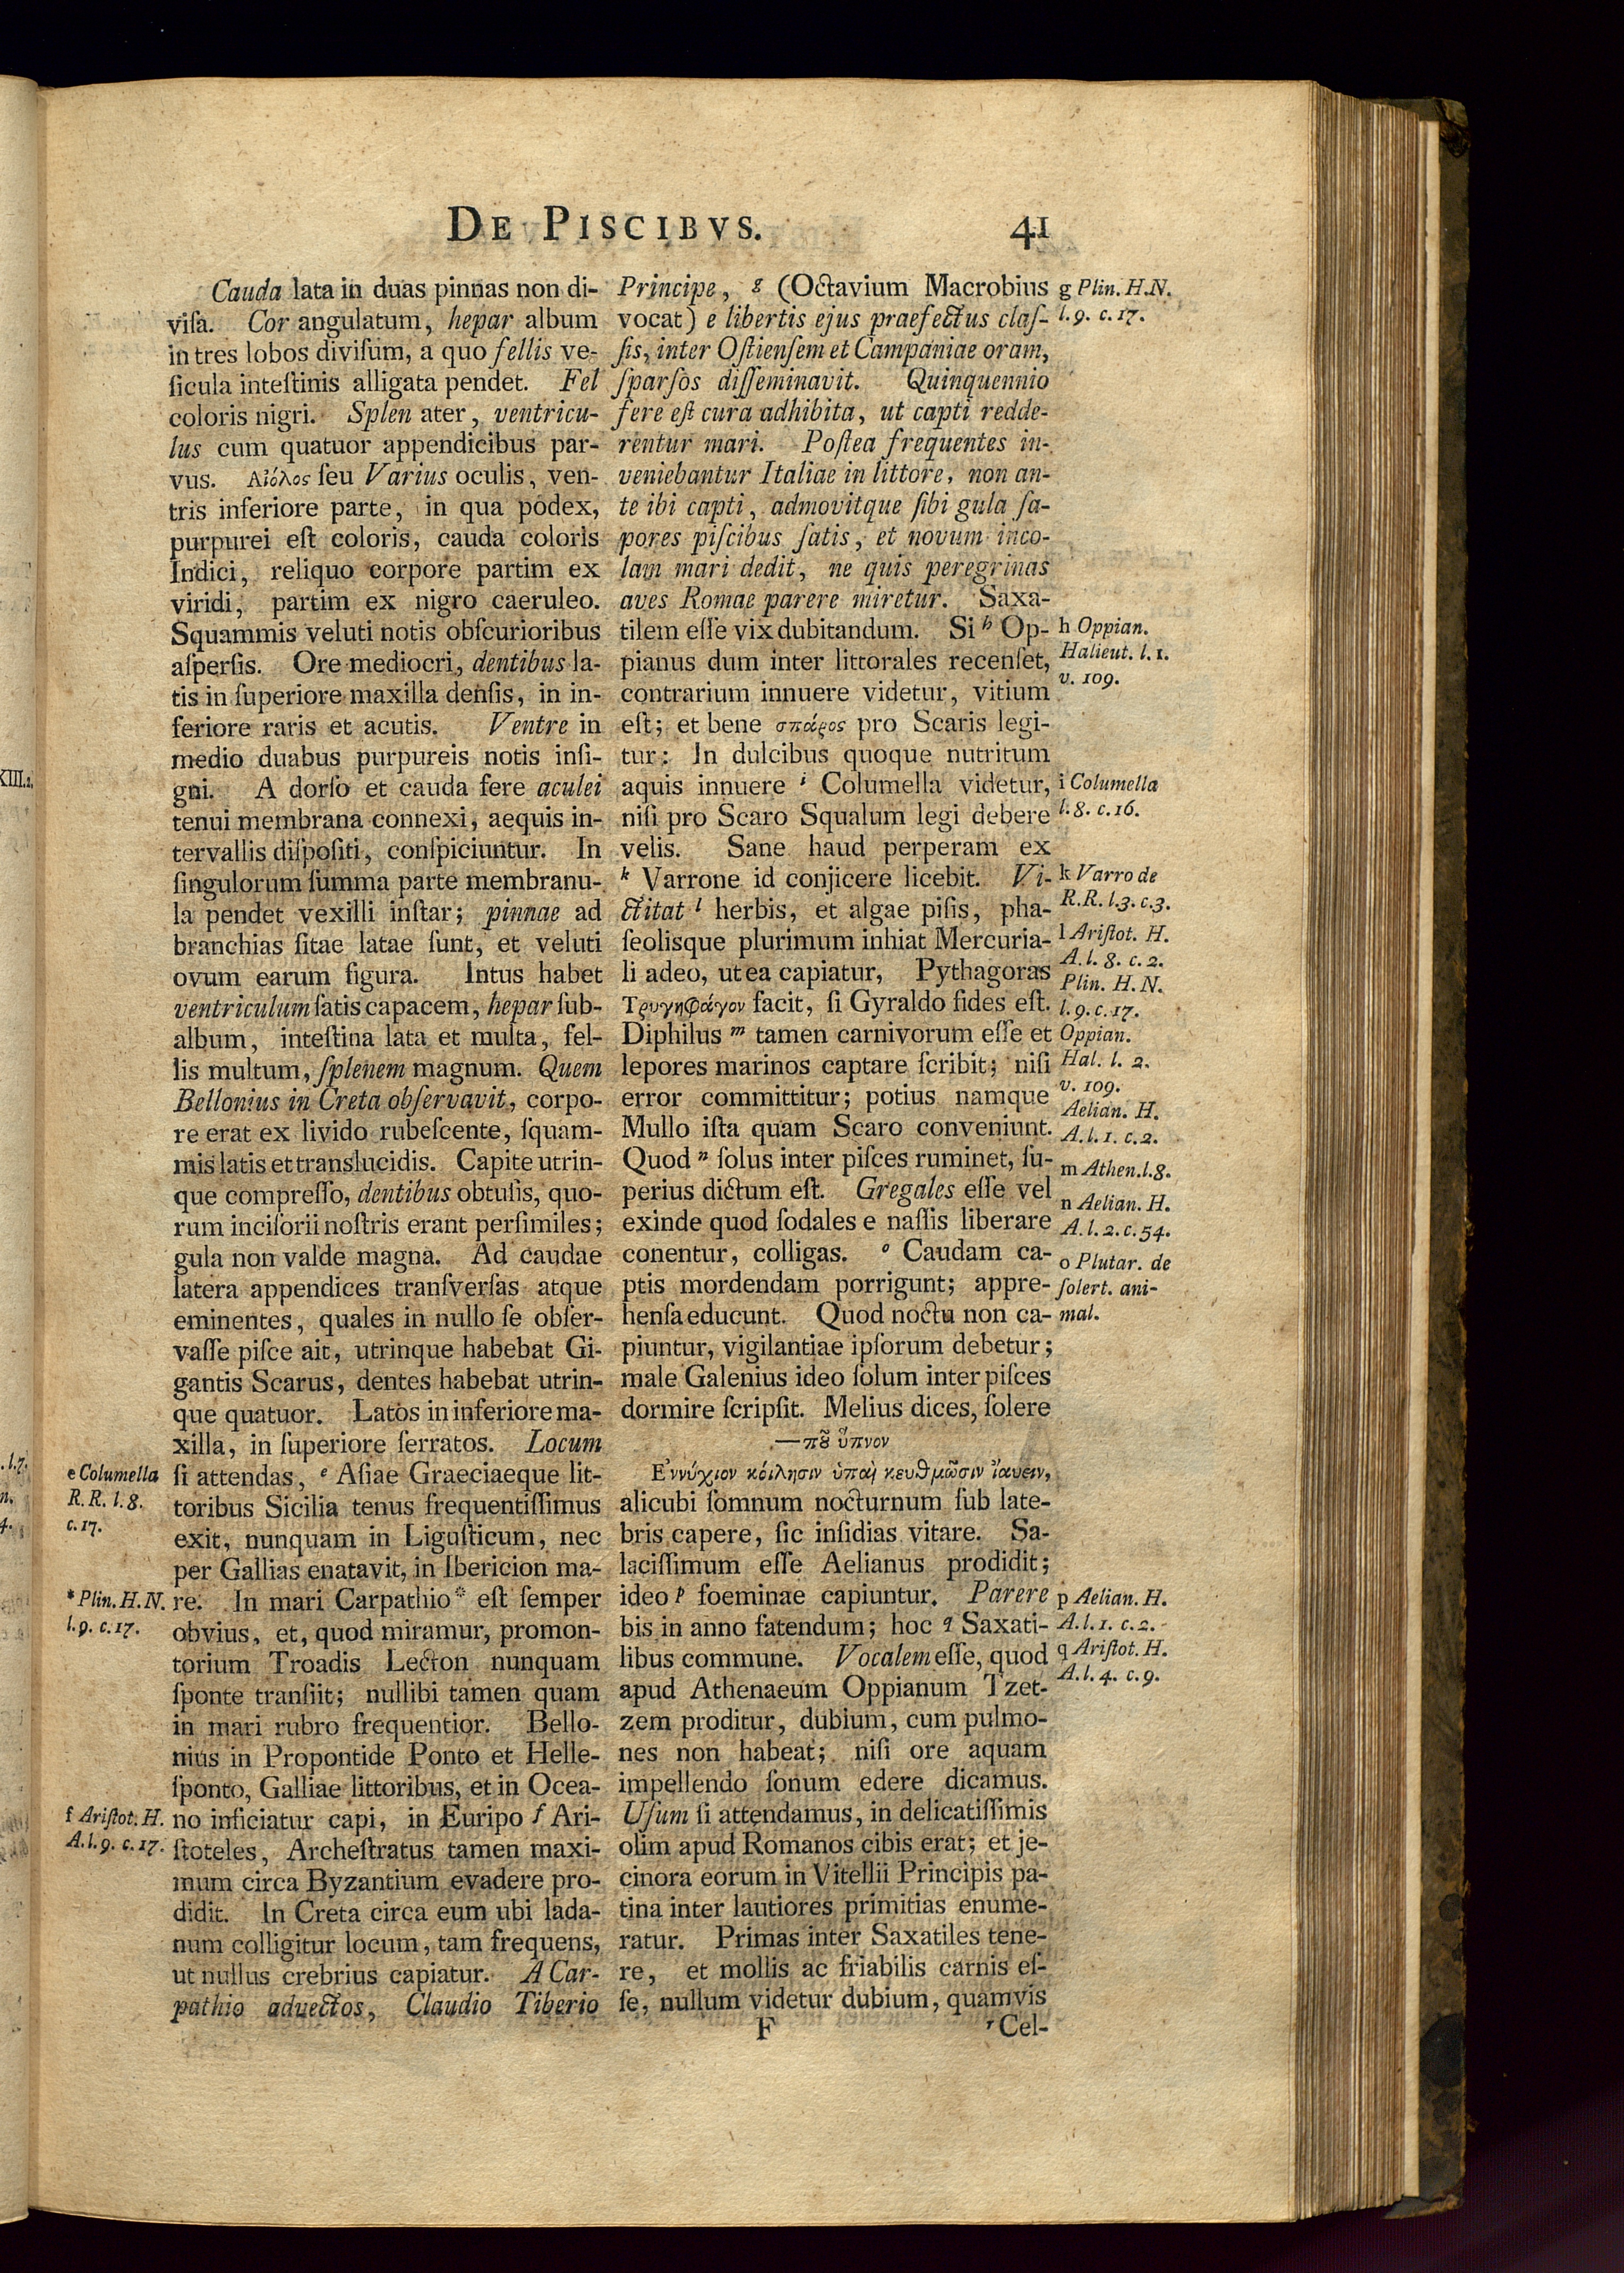 DE PISCIBVS.
41
Cauda lata in duas pinnas non di-
viſa. Cor angulatum, hepar album
in tres lobos diviſum, a quo fellis ve-
ſicula inteſtinis alligata pendet. Fel
coloris nigri. Splen ater, ventricu-
lus cum quatuor appendicibus par-
vus. Αἰόλος ſeu Varius oculis, ven-
tris inferiore parte, in qua podex,
purpurei eſt coloris, cauda coloris
Indici, reliquo corpore partim ex
viridi, partim ex nigro caeruleo.
Squammis veluti notis obſcurioribus
aſperſis. Ore mediocri, dentibus la-
tis in ſuperiore maxilla denſis, in in-
feriore raris et acutis. Ventre in
medio duabus purpureis notis inſi-
gni. A dorſo et cauda fere aculei
tenui membrana connexi, aequis in-
tervallis diſpoſiti, conſpiciuntur. In
ſingulorum ſumma parte membranu-
la pendet vexilli inſtar; pinnae ad
branchias ſitae latae ſunt, et veluti
ovum earum figura. Intus habet
ventriculum ſatis capacem, hepar ſub-
album, inteſtina lata et multa, fel-
lis multum, ſplenem magnum. Quem
Bellonius in Creta obſervavit, corpo-
re erat ex livido rubeſcente, ſquam-
mis latis et translucidis. Capite utrin-
que compreſſo, dentibus obtuſis, quo-
rum inciſorii noſtris erant perſimiles;
gula non valde magna. Ad caudae
latera appendices tranſverſas atque
eminentes, quales in nullo ſe obſer-
vaſſe piſce ait, utrinque habebat Gi-
gantis Scarus, dentes habebat utrin-
que quatuor. Latos in inferiore ma-
xilla, in ſuperiore ſerratos. Locum
ſi attendas, e Aſiae Graeciaeque lit-
toribus Sicilia tenus frequentiſſimus
exit, nunquam in Liguſticum, nec
per Gallias enatavit, in Ibericion ma-
re. In mari Carpathio* eſt ſemper
obvius, et, quod miramur, promon-
torium Troadis Lecton nunquam
ſponte tranſiit; nullibi tamen quam
in mari rubro frequentior. Bello-
nius in Propontide Ponto et Helle-
ſponto, Galliae littoribus, et in Ocea-
no inficiatur capi, in Euripo f Ari-
ſtoteles, Archeſtratus tamen maxi-
mum circa Byzantium evadere pro-
didit. In Creta circa eum ubi lada-
num colligitur locum, tam frequens,
ut nullus crebrius capiatur. A Car-
pathio advectos, Claudio Tiberio
e Columella
R. R. l. 8.
c. 17.
* Plin. H. N.
l. 9. c. 17.
f Ariſtot. H.
A. l. 9. c. 17.
Principe, g (Octavium Macrobius
vocat) e libertis ejus praefectus claſ-
ſis, inter Oſtienſem et Campaniae oram,
ſparſos diſſeminavit. Quinquennio
fere eſt cura adhibita, ut capti redde-
rentur mari. Poſtea frequentes in-
veniebantur Italiae in littore, non an-
te ibi capti, admovitque ſibi gula ſa-
pores piſcibus ſatis, et novum inco-
lam mari dedit, ne quis peregrinas
aves Romae parere miretur. Saxa-
tilem eſſe vix dubitandum. Si h Op-
pianus dum inter littorales recenſet,
contrarium innuere videtur, vitium
eſt; et bene σπάρος pro Scaris legi-
tur: In dulcibus quoque nutritum
aquis innuere i Columella videtur,
niſi pro Scaro Squalum legi debere
velis. Sane haud perperam ex
k Varrone id conjicere licebit. Vi-
ctitat l herbis, et algae piſis, pha-
ſeolisque plurimum inhiat Mercuria-
li adeo, ut ea capiatur, Pythagoras
Τρυγηφάγον facit, ſi Gyraldo fides eſt.
Diphilus m tamen carnivorum eſſe et
lepores marinos captare ſcribit; niſi
error committitur; potius namque
Mullo iſta quam Scaro conveniunt.
Quod n ſolus inter piſces ruminet, ſu-
perius dictum eſt. Gregales eſſe vel
exinde quod ſodales e naſſis liberare
conentur, colligas. o Caudam ca-
ptis mordendam porrigunt; appre-
henſa educunt. Quod noctu non ca-
piuntur, vigilantiae ipſorum debetur;
male Galenius ideo ſolum inter piſces
dormire ſcripſit. Melius dices, ſolere
—πȣ ὕπνον
Ἐννύχιον κόιλησιν ὑπαὶ κευθμῶσιν ἰαυειν,
alicubi ſomnum nocturnum ſub late-
bris capere, ſic inſidias vitare. Sa-
laciſſimum eſſe Aelianus prodidit;
ideo p foeminae capiuntur. Parere
bis in anno fatendum; hoc q Saxati-
libus commune. Vocalem eſſe, quod
apud Athenaeum Oppianum Tzet-
zem proditur, dubium, cum pulmo-
nes non habeat; niſi ore aquam
impellendo ſonum edere dicamus.
Uſum ſi attendamus, in delicatiſſimis
olim apud Romanos cibis erat; et je-
cinora eorum in Vitellii Principis pa-
tina inter lautiores primitias enume-
ratur. Primas inter Saxatiles tene-
re, et mollis ac friabilis carnis eſ-
ſe, nullum videtur dubium, quamvis
F
r Cel-
g Plin. H. N.
l. 9. c. 17.
h Oppian.
Halieut. l. 1.
v. 109.
i Columella
l. 8. c. 16.
k Varro de
R. R. l. 3. c. 3.
l Ariſtot. H.
A. l. 8. c. 2.
Plin. H. N.
l. 9. c. 17.
Oppian.
Hal. l. 2.
v. 109.
Aelian. H.
A. l. 1. c. 2.
m Athen. l. 8.
n Aelian. H.
A. l. 2. c. 54.
o Plutar. de
ſolert. ani-
mal.
p Aelian. H.
A. l. 1. c. 2.
q Ariſtot. H.
A. l. 4. c. 9.